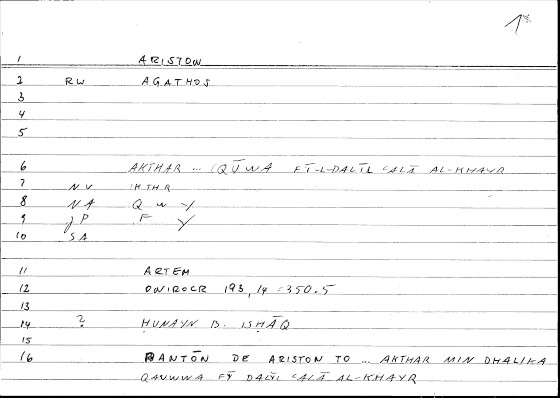 1*
1 ARISTON
2 RW AGATHOS
3
4
5
6 AKTHAR ... (QŪWA FĪ-L-DALĪL ʿALĀ AL-KHAYR
7 NV 'KTHR
8 NA Q W Y
9 JP F Y
10 SA
11 ARTEM
12 ONIROCR 193,14 = 350.5
13
14 ? ḤUNAYN B. ISḤĀQ
15
16 PANTŌN DE ARISTON TO ... AKTHAR MIN DHALIKA
QAUWWA FĪ DALĪL ʿALĀ AL-KHAYR